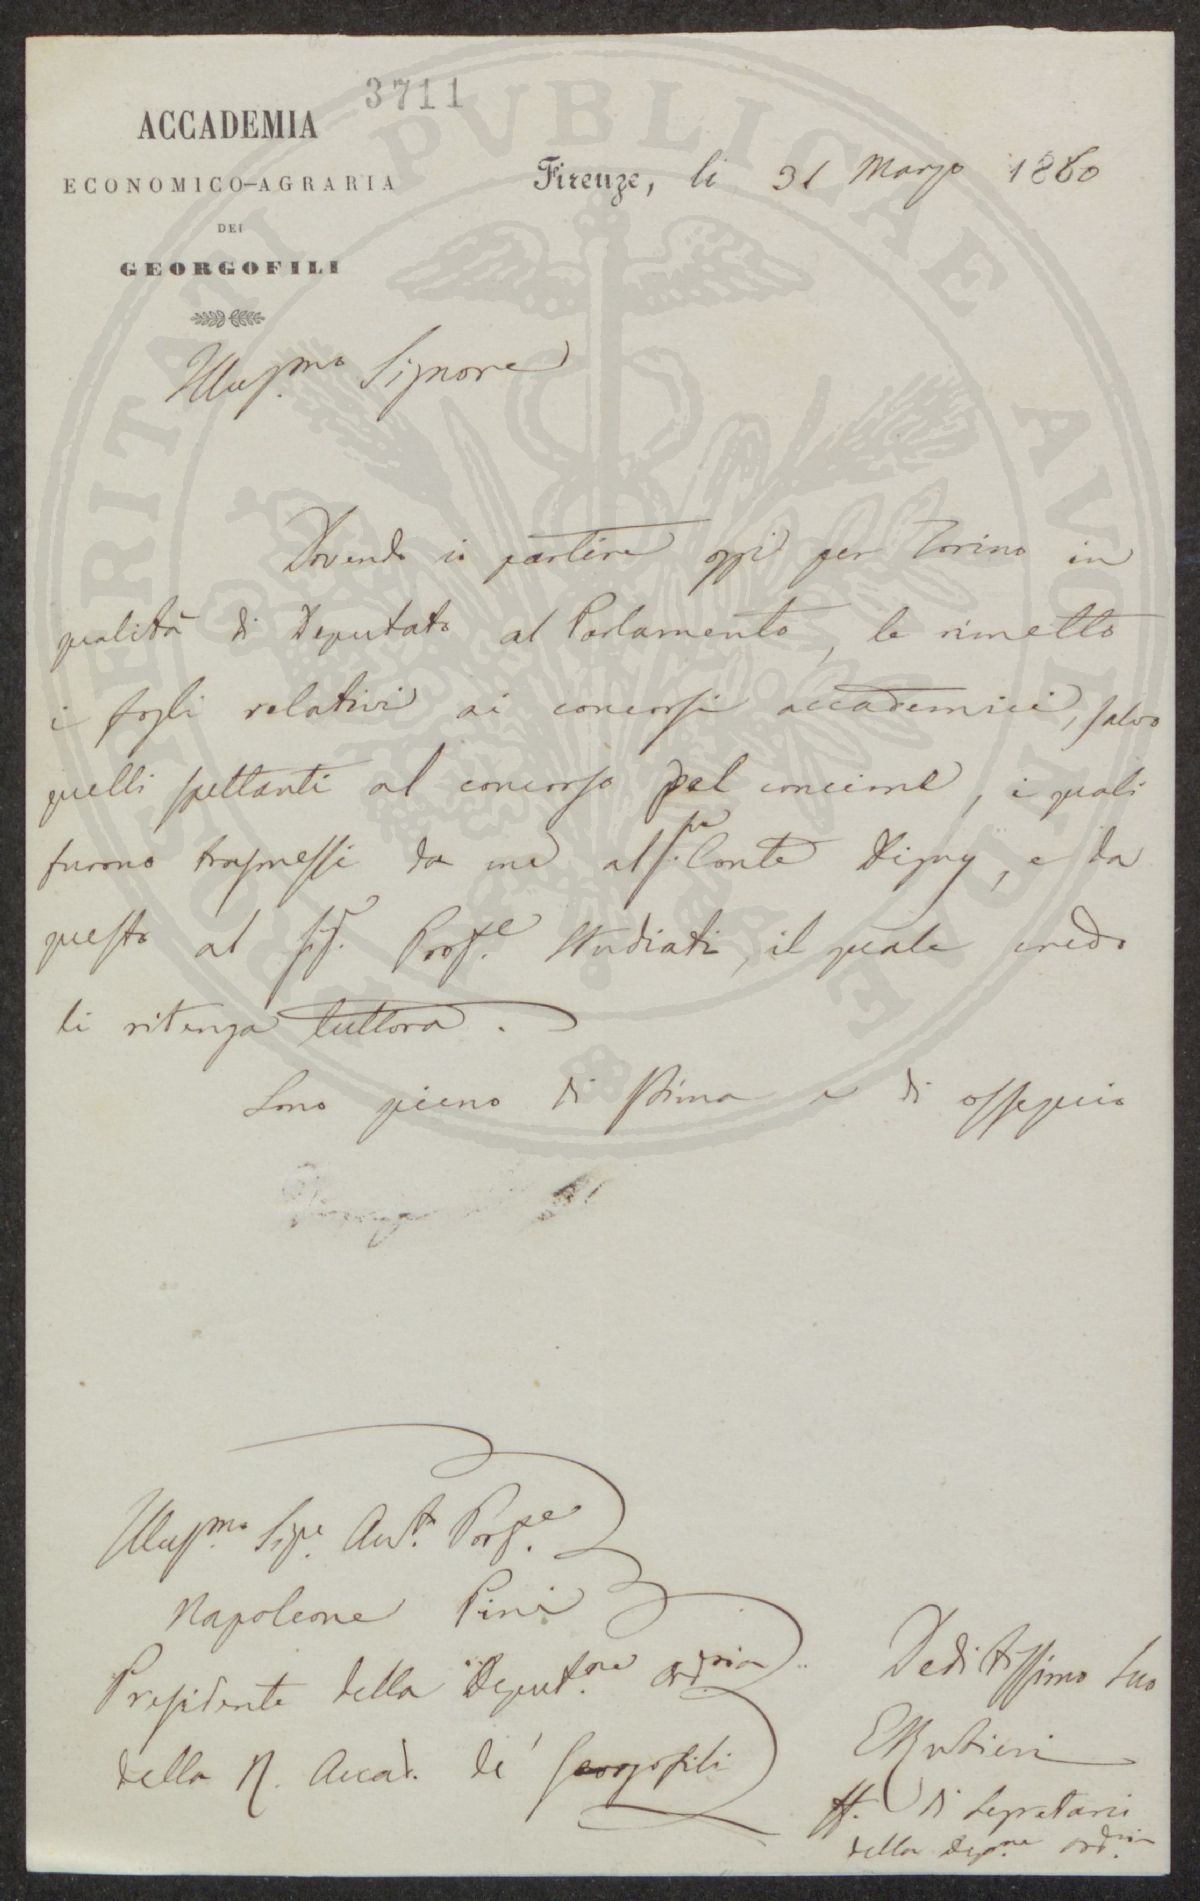 3711
ACCADEMIA
ECONOMICO-AGRARIA
DEI
GEORGOFILI
Firenze, li 31 Marzo 1860
Illus.mo Signore
Dovendo io partire oggi per Torino in
qualità di Deputato al Parlamento, le rimetto
i fogli relativi ai concorsi accademici, salvo
quelli spettanti al concorso pel concime, i quali
furono trasmessi da me al Conte Digny, e da
questo al Sig. Prof.e Studiati, il quale credo
li ritenga tuttora.
Sono pieno di stima e di ossequio
Illus.mo Sig.e
Napoleone Pini
Presidente della Deput.ne ord.ria
della R. Accad. de' Georgofili
Deditissimo Suo
E Rubieri
ff. di Segretario
della Dep.ne ord.ria
PROSPERITATI PVBLICAE AVGENDAE